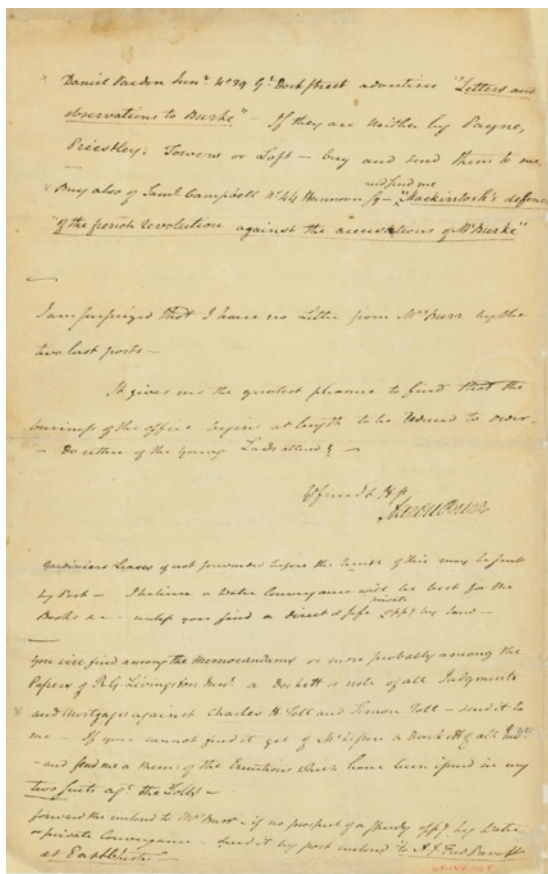 x Daniel Pardon Junr No 39 Gt Dock Street advertises "Letters and
observations to Burke" – If they are neither by Payne,
Priestley, Towers or Loft – buy and send them to me,
x Buy also of Saml Campbell No 44 Hannover Sq – and send me "Mackintosh's defence
"of the french revolution against the accusations of Mr Burke"
I am surprized that I have no Letter from Mrs Burr by the
two last posts –
It gives me the greatest pleasure to find that the
business of the office begins at length to be reduced to order –
– Do either of the young Lads attend? –
Yr friend &
Aaron Burr
Gardiniers Leases if not forwarded before the of this may be sent
by Post – I believe a Water Conveyance will be best for the
Books &c – unless you find a direct & safe private oppy by land –
You will find among the Memorandums or more probably among the
Papers of R. G. Livingston a Dockett or note of all Judgments
x and Mortgages against Charles H. Toll and Simon Toll – send it to
me – If you cannot find it get of Mr a Dockett of all Judgts
– and send me a Memo. of the Executions which have been issued in my
two suits agt the Tolls –
forward the enclosed to Mrs Burr – if no prospect of a speedy oppy by Water
or private Conveyance – send it by post enclosed to A. J. Fred Prevost
at EastChester" –